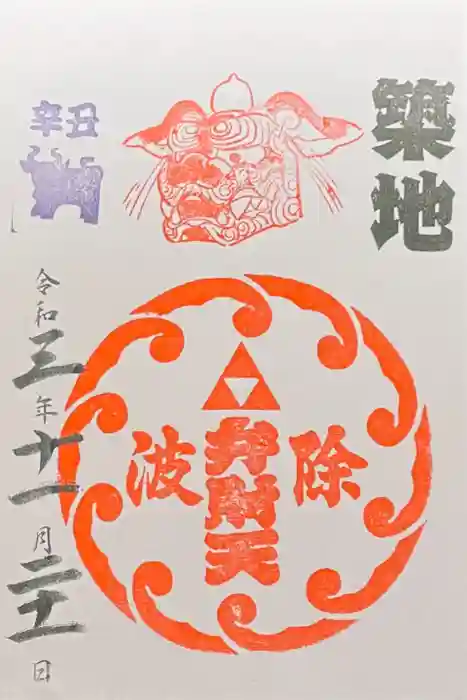 築地
辛丑
除波
弁財天
令和三年十一月二十一日